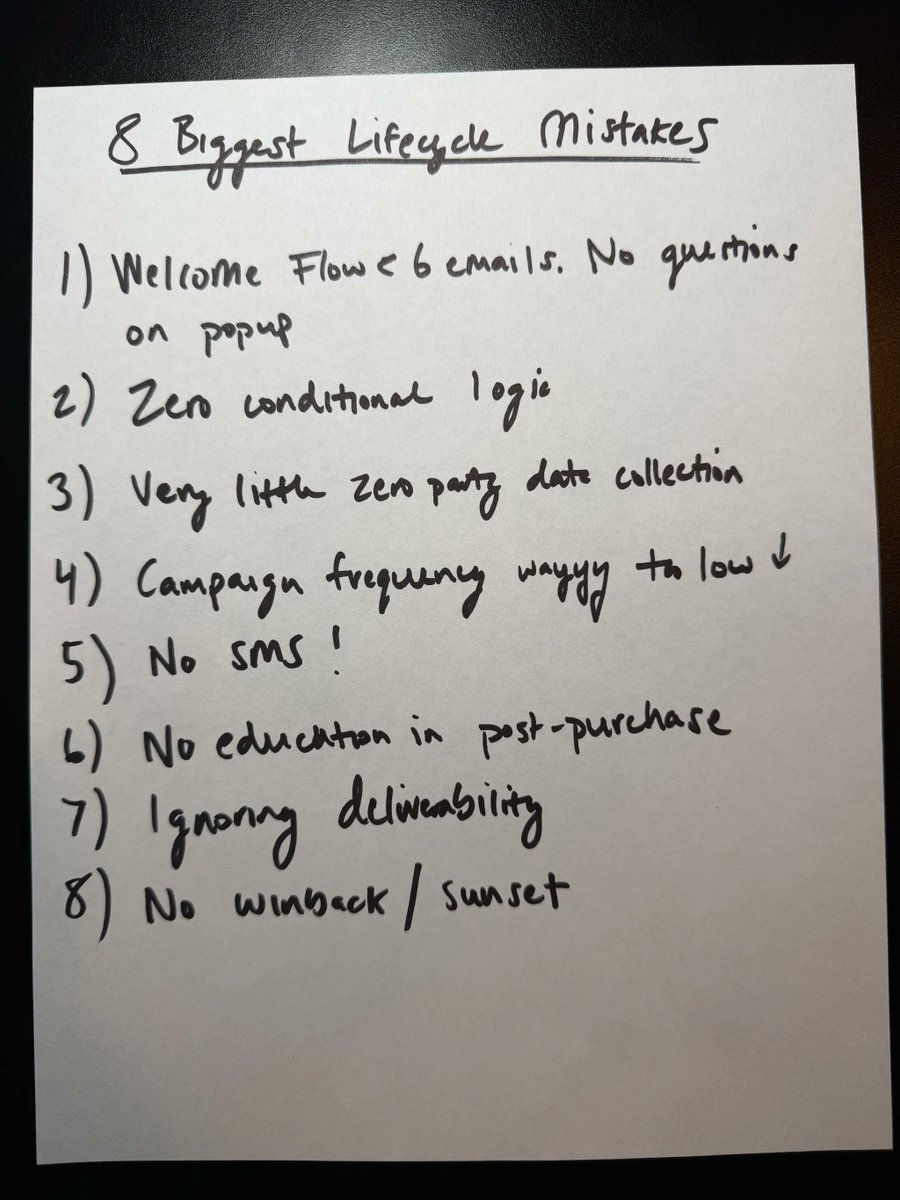 8 Biggest Lifecycle Mistakes
1) Welcome Flow < 6 emails. No questions
on popup
2) Zero conditional logic
3) Very little zero party date collection
4) Campaign frequency wayyy to low ↓
5) No SMS !
6) No education in post-purchase
7) Ignoring deliverability
8) No winback / sunset